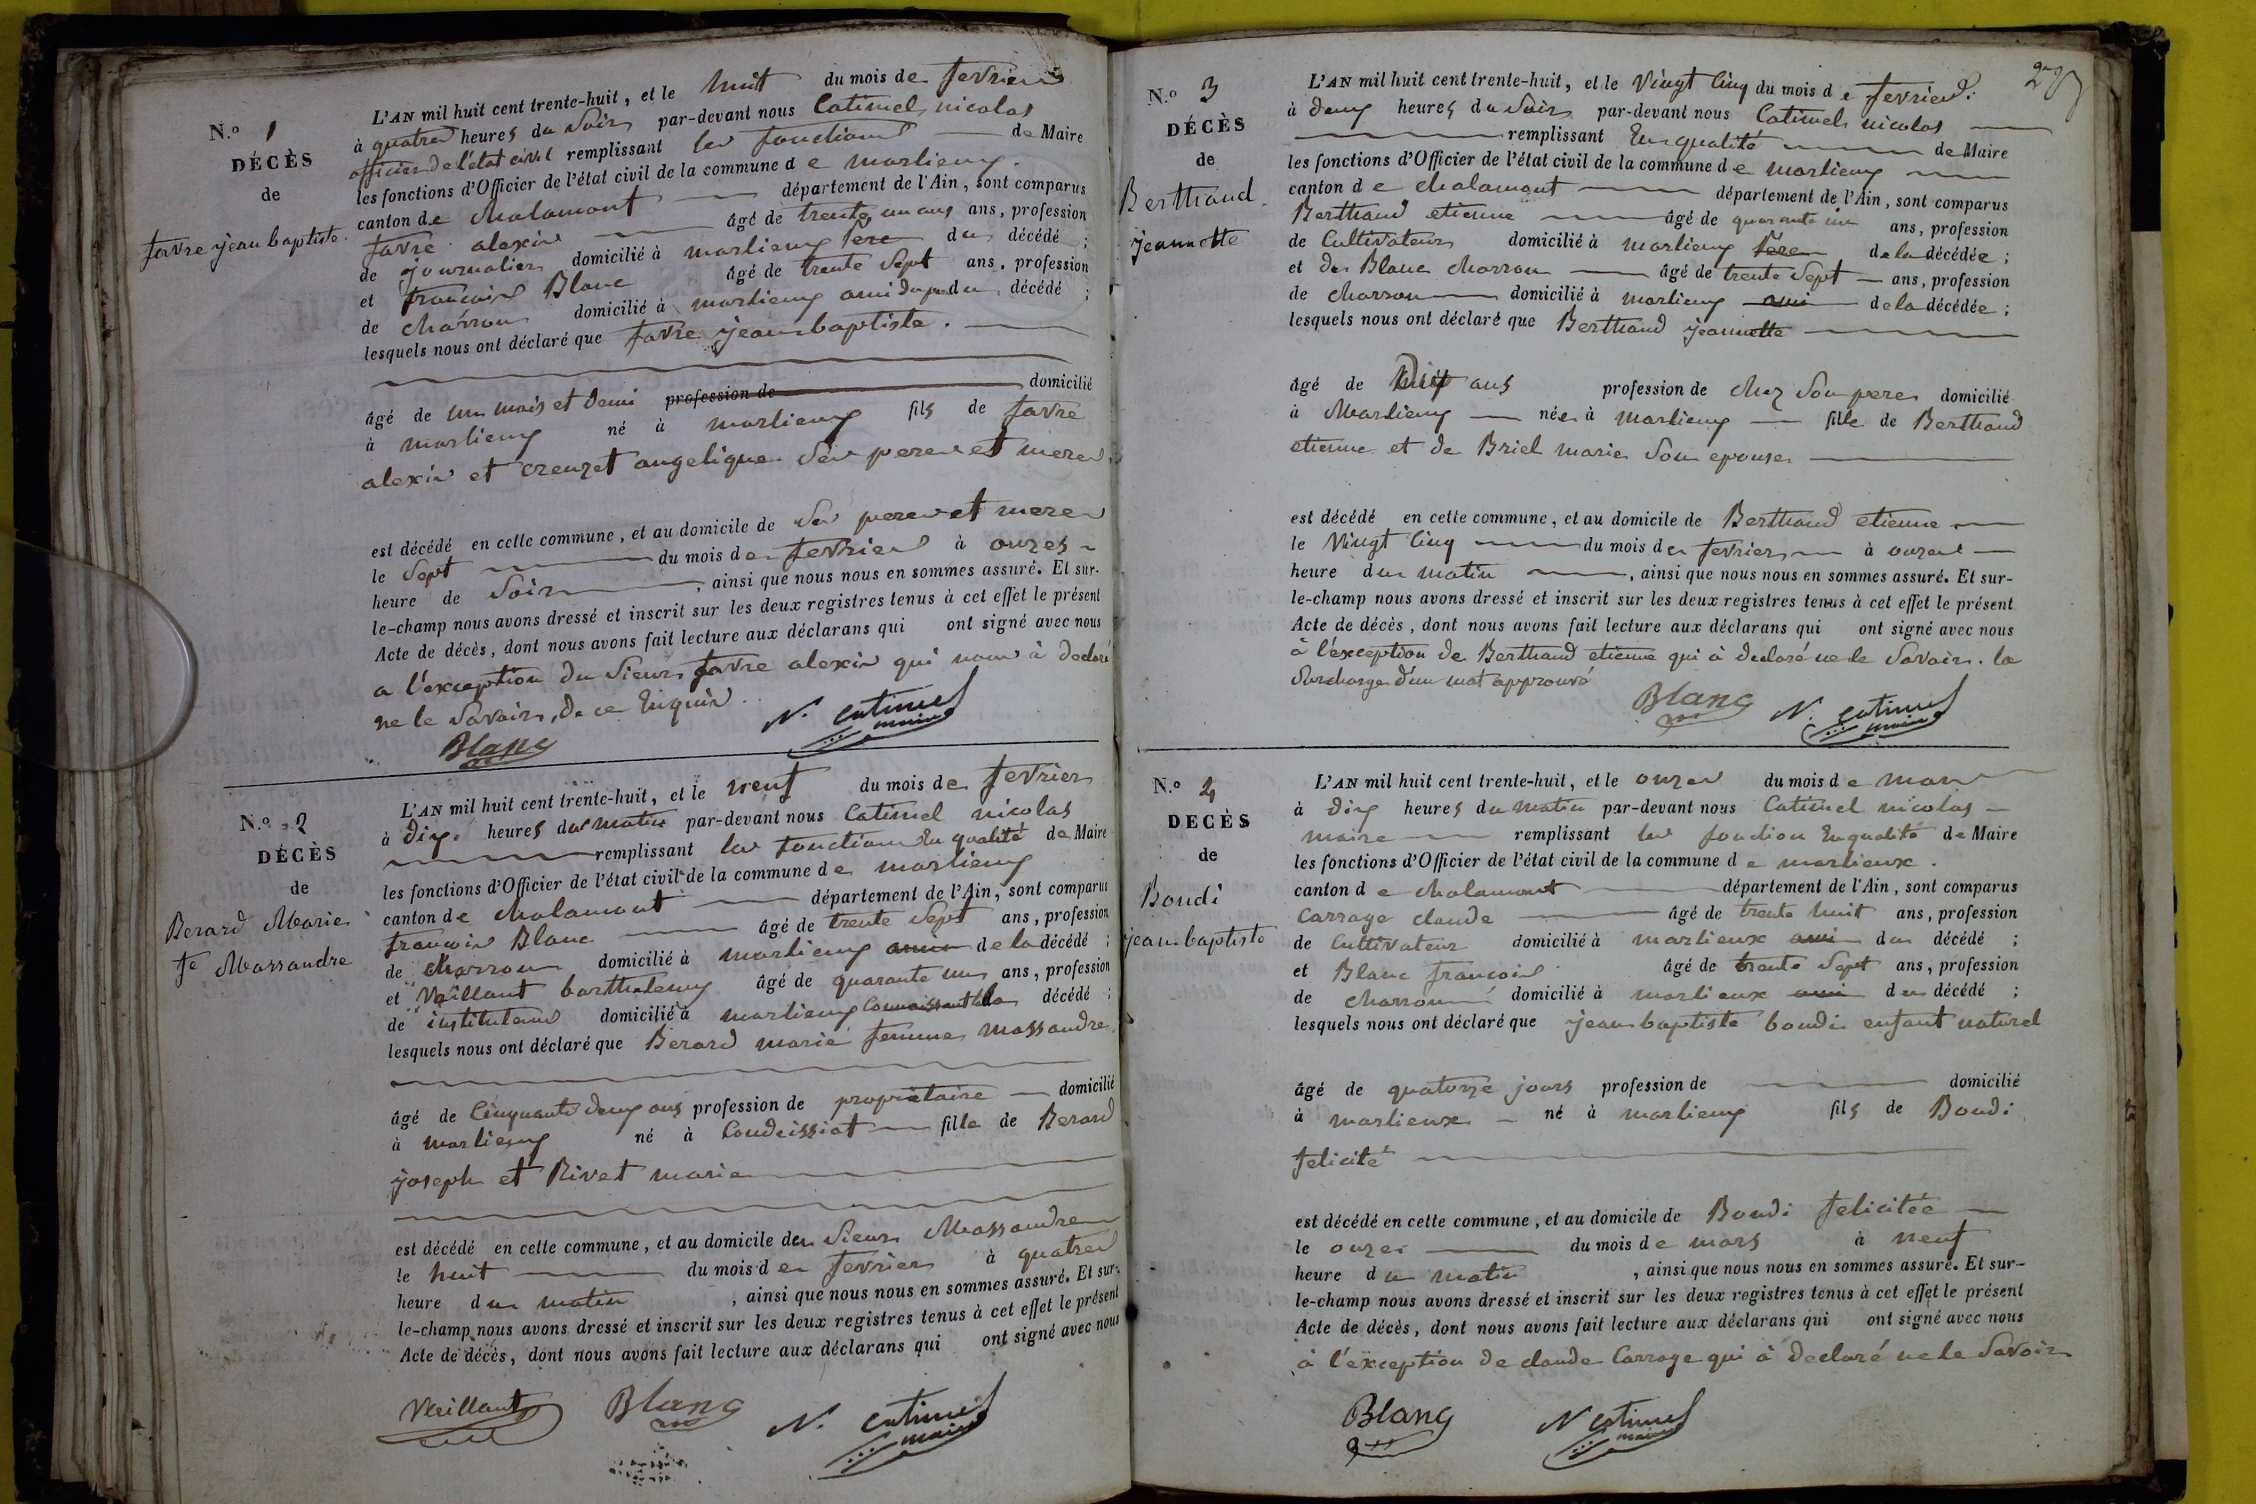 N.o 1
DÉCÈS
de
favre jean baptiste.
L'AN mil huit cent trente-huit, et le huit du mois de fevrier
à quatre heures du Soir par-devant nous Catimel nicolas
officier de l'état civil remplissant les fonctions de Maire
les fonctions d'Officier de l'état civil de la commune de marlieux.
canton de chalamont département de l'Ain, sont comparus
favre alexis âgé de trente un ans ans, profession
de journalier domicilié à marlieux père du décédé ;
et francois Blanc âgé de trente Sept ans, profession
de charron domicilié à marlieux ami du décédé ;
lesquels nous ont déclaré que favre jean baptiste.
âgé de un mois et demi profession de domicilié
à marlieux né à marlieux fils de favre
alexis et creuzet angelique Ses pere et mere
est décédé en cette commune, et au domicile de Ses pere et mere
le Sept du mois de fevrier à onzes
heure de Soir , ainsi que nous nous en sommes assuré. Et sur-
le-champ nous avons dressé et inscrit sur les deux registres tenus à cet effet le présent
Acte de décès, dont nous avons fait lecture aux déclarans qui ont signé avec nous
a l'exception du Sieur favre alexis qui nous à declaré
ne le Savoir, de ce Enquis.
Blanc N. catimel maire
N.o 2
DÉCÈS
de
Berard Marie
fe Massandre
L'AN mil huit cent trente-huit, et le neuf du mois de fevrier
à dix heures du matin par-devant nous Catimel nicolas
remplissant les fonctions En qualité de Maire
les fonctions d'Officier de l'état civil de la commune de marlieux
canton de chalamont département de l'Ain, sont comparus
francois Blanc âgé de trente Sept ans, profession
de charron domicilié à marlieux ami de la décédé ;
et Vaillant barthelemy âgé de quarante un ans, profession
de instituteur domicilié à marlieux Connaissant la décédé ;
lesquels nous ont déclaré que Berard marie femme massandre.
âgé de Cinquante deux ans profession de propriétaire domicilié
à marlieux né à Condeissiat fille de Berard
joseph et Rivet marie
est décédé en cette commune, et au domicile deu Sieur Massandre
le huit du mois de fevrier à quatre
heure du matin , ainsi que nous nous en sommes assuré. Et sur-
le-champ nous avons dressé et inscrit sur les deux registres tenus à cet effet le présent
Acte de décès, dont nous avons fait lecture aux déclarans qui ont signé avec nous
Vaillant Blanc N. catimel maire
N.o 3
DÉCÈS
de
Berthaud
jeannette
L'AN mil huit cent trente-huit, et le Vingt Cinq du mois de fevrier.
à deux heures du Soir par-devant nous Catimel nicolas
remplissant En qualité de Maire
les fonctions d'Officier de l'état civil de la commune de marlieux
canton de chalamont département de l'Ain, sont comparus
Berthaud etienne âgé de quarante un ans, profession
de Cultivateur domicilié à marlieux Père de la décédée ;
et de Blanc charron âgé de trente Sept ans, profession
de charron domicilié à marlieux ami de la décédée ;
lesquels nous ont déclaré que Berthaud jeannette
âgé de ans profession de chez Son pere domicilié
à Marlieux née à marlieux fille de Berthaud
etienne et de Briel marie Son epouse
est décédé en cette commune, et au domicile de Berthaud etienne
le Vingt Cinq du mois de fevrier à onze
heure du matin , ainsi que nous nous en sommes assuré. Et sur-
le-champ nous avons dressé et inscrit sur les deux registres tenus à cet effet le présent
Acte de décès, dont nous avons fait lecture aux déclarans qui ont signé avec nous
à l'exception de Berthaud etienne qui à declaré ne le Savoir. la
Surcharge d'un mot approuvé
Blanc N. catimel maire
N.o 4
DECÈS
de
Boudi
jean baptiste
L'AN mil huit cent trente-huit, et le onze du mois de mars
à dix heures du matin par-devant nous Catimel nicolas
maire remplissant les fonction En qualité de Maire
les fonctions d'Officier de l'état civil de la commune de marlieux.
canton de chalamont département de l'Ain, sont comparus
Carrage claude âgé de trente huit ans, profession
de Cultivateur domicilié à marlieux ami du décédé ;
et Blanc francois âgé de trente Sept ans, profession
de charron domicilié à marlieux ami du décédé ;
lesquels nous ont déclaré que jean baptiste boudi enfant naturel
âgé de quatorze jours profession de domicilié
à marlieux né à marlieux fils de Boudi
felicité
est décédé en cette commune, et au domicile de Boudi felicitée
le onze du mois de mars à neuf
heure du matin , ainsi que nous nous en sommes assuré. Et sur-
le-champ nous avons dressé et inscrit sur les deux registres tenus à cet effet le présent
Acte de décès, dont nous avons fait lecture aux déclarans qui ont signé avec nous
à l'exception de claude Carrage qui à declaré ne le Savoir
Blanc N catimel maire